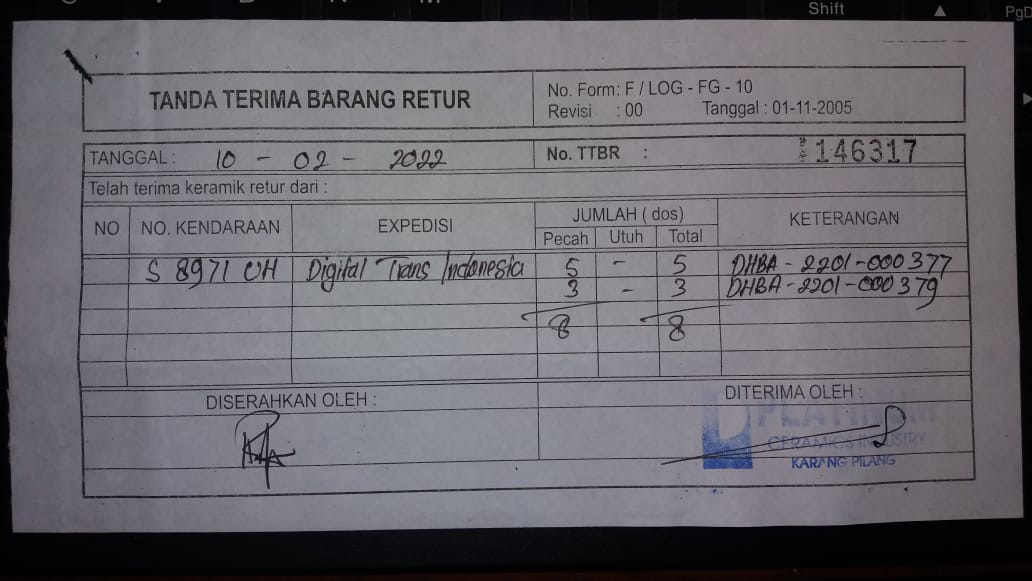 Shift
PgD
M
TANDA TERIMA BARANG RETUR
No. Form: F / LOG - FG - 10
Revisi : 00 Tanggal : 01-11-2005
TANGGAL : 10 - 02 - 2022
No. TTBR : 146317
Telah terima keramik retur dari :
NO NO. KENDARAAN EXPEDISI JUMLAH ( dos) KETERANGAN
Pecah Utuh Total
S 8971 UH Digital Trans Indonesia 5 - 5 DHBA - 2201-000377
3 - 3 DHBA - 2201-000379
8 8
DISERAHKAN OLEH :
DITERIMA OLEH :
PLATINUM
CERAMICS INDUSTRY
KARANG PILANG